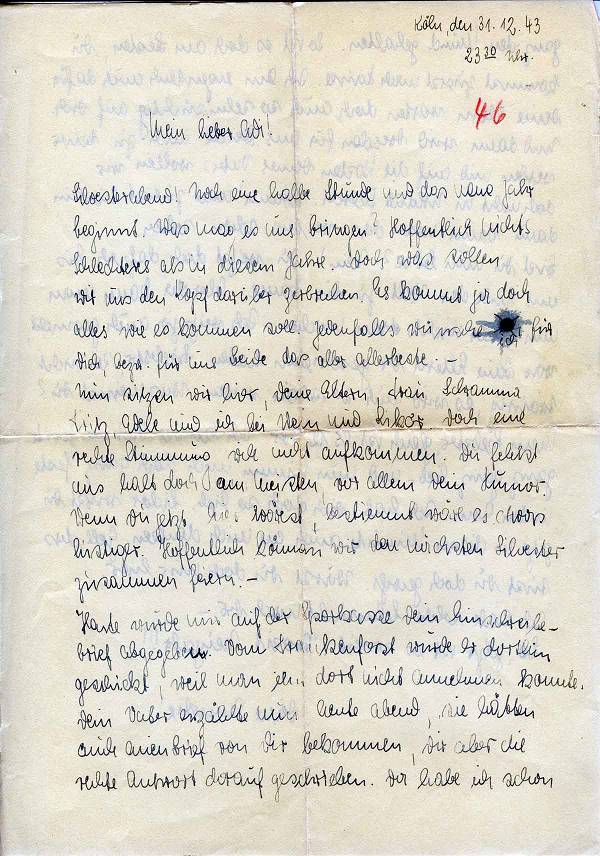 Köln, den 31.12.43
23 30 Uhr.
46
Mein lieber Adi!
Silvesterabend! Noch eine halbe Stunde und das neue Jahr
beginnt. Was mag es uns bringen? Hoffentlich nichts
Schlechteres als in diesem Jahre. Doch was sollen
wir uns den Kopf darüber zerbrechen. Es kommt ja doch
alles wie es kommen soll. Jedenfalls wünsche ich für
Dich bezw. für uns beide das aller allerbeste. –
Nun sitzen wir hier, Deine Eltern, Frau Schramma
Fritz, und ich bei Wein und Likör doch eine
rechte Stimmung will nicht aufkommen. Du fehlst
uns halt doch am meisten, vor allem Dein Humor.
Wenn Du jetzt hier wärest, bestimmt wäre es etwas
lustiger. Hoffentlich können wir den nächsten Silvester
zusammen feiern. –
Heute wurde mir auf der Sparkasse Dein Einschreibe-
brief abgegeben. Vom wurde er dorthin
geschickt, weil man ihn dort nicht annehmen konnte.
Dein Vater erzählte mir heute abend, sie hätten
auch einen Brief von Dir bekommen, Dir aber die
rechte Antwort darauf geschrieben. Da habe ich schon